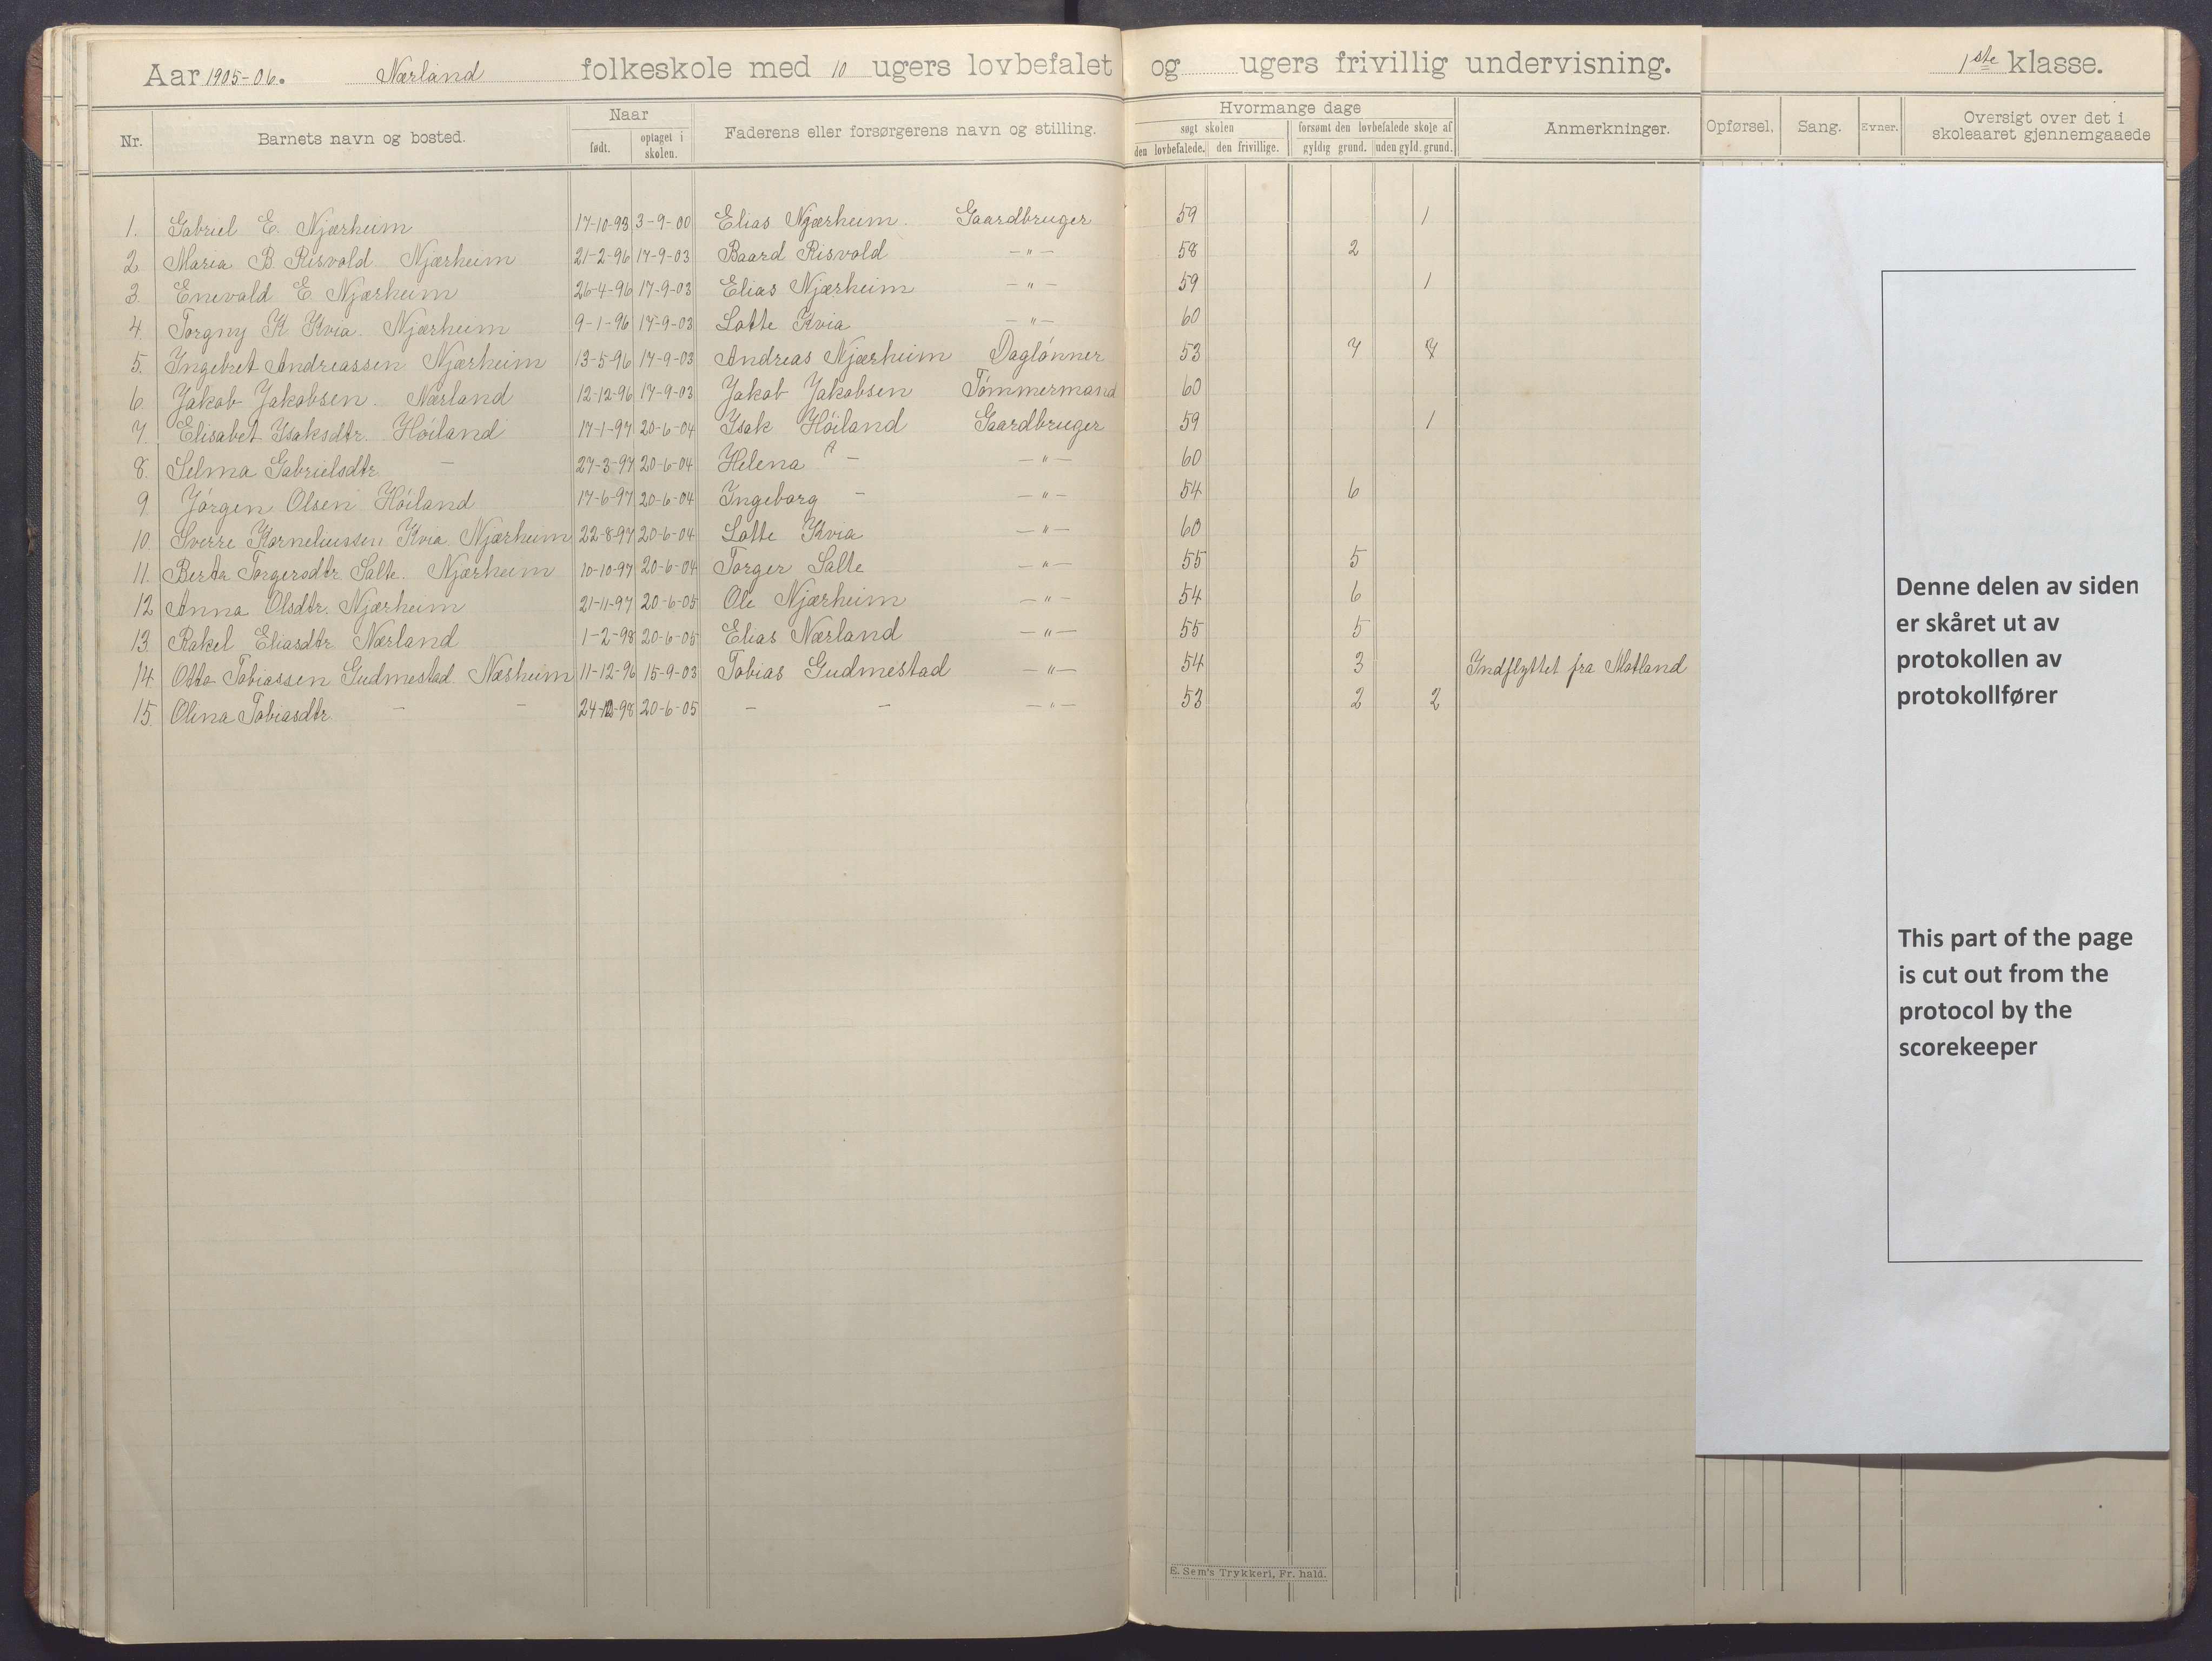 Aar 1905-06. Nærland folkeskole med 10 ugers lovbefalet og ugers frivillig undervisning. 1ste klasse.
Nr. Barnets navn og bosted. Naar født. optaget i skolen. Faderens eller forsørgerens navn og stilling. Hvormange dage søgt skolen den lovbefalede. den frivillige. forsømt den lovbefalede skole af gyldig grund. uden gyld. grund. Anmerkninger. Opførsel. Sang. Evner. Oversigt over det i skoleaaret gjennemgaaede
1. Gabriel E. Njærheim 17-10-93 3-9-00 Elias Njærheim. Gaardbruger 59 1
2. Maria B Risvold Njærheim 21-2-96 17-9-03 Baard Risvold -"- 58 2
3. Enevald E. Njærheim 26-4-96 17-9-03 Elias Njærheim -"- 59 1
4. Torgny K. Kvia. Njærheim 9-1-96 17-9-03 Lotte Kvia -"- 60
5. Ingebret Andreassen Njærheim 13-5-96 17-9-03 Andreas Njærheim Daglønner 53 7
6. Jakob Jakobsen. Nærland 12-12-96 17-9-03 Jakob Jakobsen Tømmermand 60
7. Elisabet Isaksdtr. Høiland 17-1-97 20-6-04 Isak Høiland Gaardbruger 59 1
8. Selma Gabrielsdtr. - 27-3-97 20-6-04 Helena - -"- 60
9. Jørgen Olsen Høiland 17-6-97 20-6-04 Ingeborg - -"- 54 6
10. Sverre Korneliussen Kvia Njærheim 22-8-97 20-6-04 Lotte Kvia -"- 60
11. Berta Torgersdtr. Salte. Njærheim 10-10-97 20-6-04 Torger Salte -"- 55 5
12. Anna Olsdtr. Njærheim 21-11-97 20-6-05 Ole Njærheim -"- 54 6
13. Rakel Eliasdtr. Nærland 1-2-98 20-6-05 Elias Nærland -"- 55 5
14. Otto Tobiassen Gudmestad. Næsheim 11-12-96 15-9-03 Tobias Gudmestad -"- 54 3 Indflyttet fra Motland
15. Olina Tobiasdtr. - - 24-12-98 20-6-05 - - -"- 53 2 2
Denne delen av siden
er skåret ut av
protokollen av
protokollfører
This part of the page
is cut out from the
protocol by the
scorekeeper
E. Sem's Trykkeri, Fr. hald.